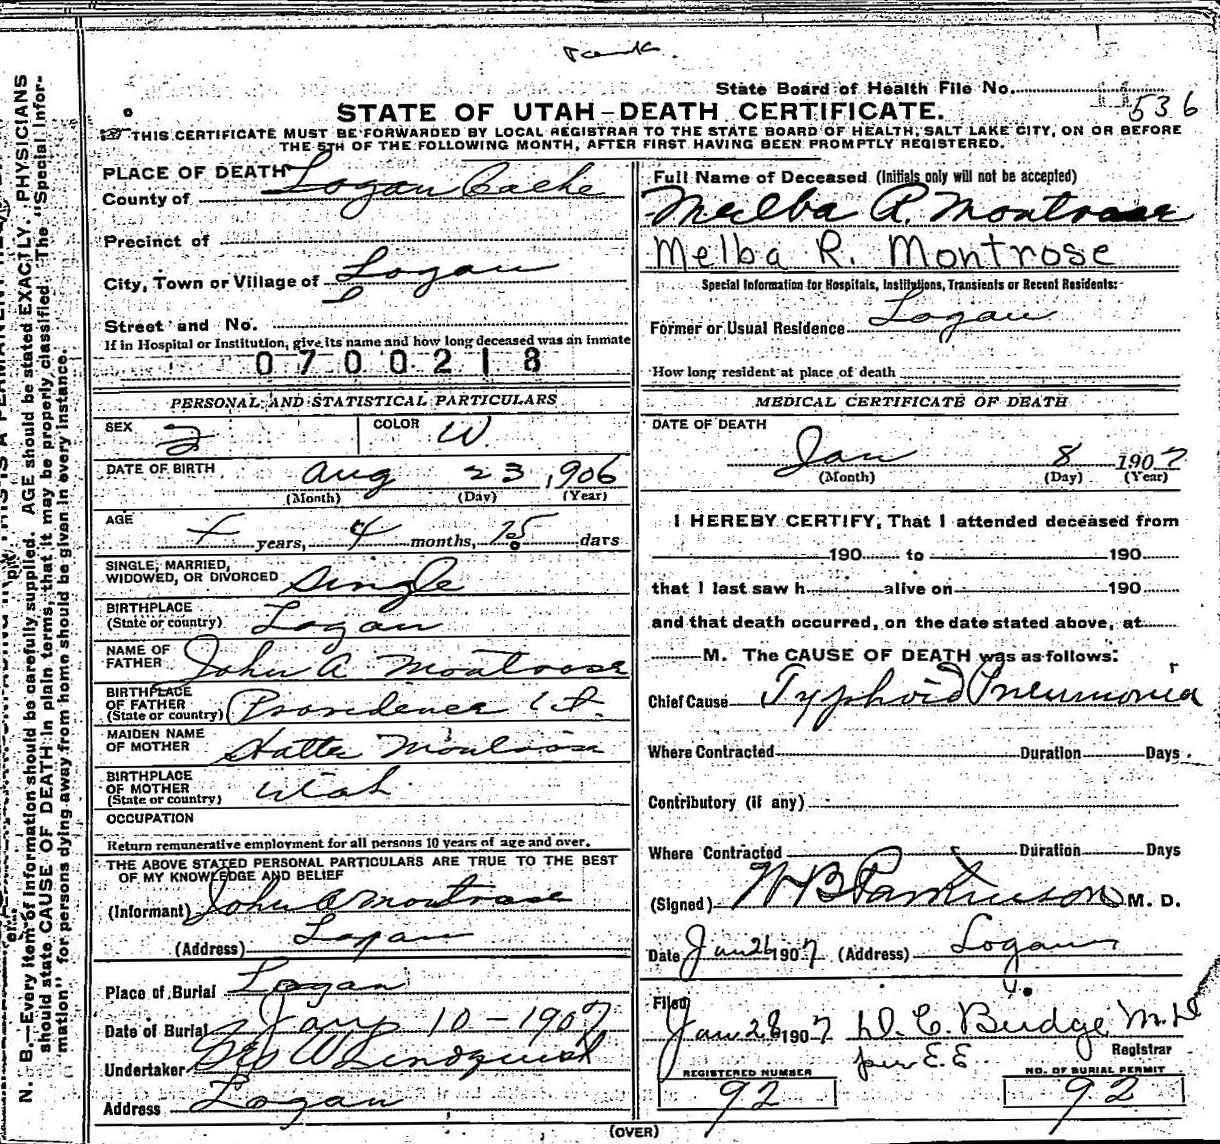 State Board of Health File No. 536
STATE OF UTAH-DEATH CERTIFICATE.
THIS CERTIFICATE MUST BE FORWARDED BY LOCAL REGISTRAR TO THE STATE BOARD OF HEALTH, SALT LAKE CITY, ON OR BEFORE
THE 5TH OF THE FOLLOWING MONTH, AFTER FIRST HAVING BEEN PROMPTLY REGISTERED.
PLACE OF DEATH
County of Logan Cache
Precinct of
City, Town or Village of Logan
Street and No.
If in Hospital or Institution, give its name and how long deceased was an inmate
0700218
PERSONAL AND STATISTICAL PARTICULARS
SEX F COLOR W
DATE OF BIRTH Aug 23, 1906
(Month) (Day) (Year)
AGE years, 4 months, 15 days
SINGLE, MARRIED,
WIDOWED, OR DIVORCED Single
BIRTHPLACE
(State or country) Logan
NAME OF
FATHER John A Montrose
BIRTHPLACE
OF FATHER
(State or country) Providence Ut.
MAIDEN NAME
OF MOTHER Hattie Montrose
BIRTHPLACE
OF MOTHER
(State or country) Utah
OCCUPATION
Return remunerative employment for all persons 10 years of age and over.
THE ABOVE STATED PERSONAL PARTICULARS ARE TRUE TO THE BEST
OF MY KNOWLEDGE AND BELIEF
(Informant) John A Montrose
(Address) Logan
Place of Burial Logan
Date of Burial Jany 10-1907
Undertaker Geo W Lindquist
Address Logan
Full Name of Deceased (Initials only will not be accepted)
Melba R. Montrose
Melba R. Montrose
Special Information for Hospitals, Institutions, Transients or Recent Residents:
Former or Usual Residence Logan
How long resident at place of death
MEDICAL CERTIFICATE OF DEATH
DATE OF DEATH
Jan 8 1907
(Month) (Day) (Year)
I HEREBY CERTIFY, That I attended deceased from
190 to 190
that I last saw h alive on 190
and that death occurred, on the date stated above, at
M. The CAUSE OF DEATH was as follows:
Chief Cause Typhoid Pneumonia
Where Contracted Duration Days
Contributory (if any)
Where Contracted Duration Days
(Signed) W B Parkinson M. D.
Date Jan 26 1907 (Address) Logan
Filed
Jan 28 1907 D. C. Budge M.D.
per E.E. Registrar
REGISTERED NUMBER NO. OF BURIAL PERMIT
92 92
(OVER)
N. B.—Every item of information should be carefully supplied. AGE should be stated EXACTLY. PHYSICIANS
should state CAUSE OF DEATH in plain terms, that it may be properly classified. The "Special Infor-
mation" for persons dying away from home should be given in every instance.